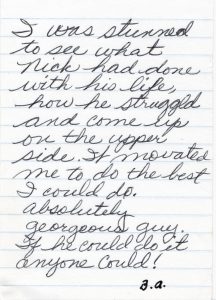 I was stunned
to see what
Nick had done
with his life,
how he struggld
and come up
on the upper
side. It movated
me to do the best
I could do.
absolutely
georgeous guy.
If he could do it
anyone could!
B.A.